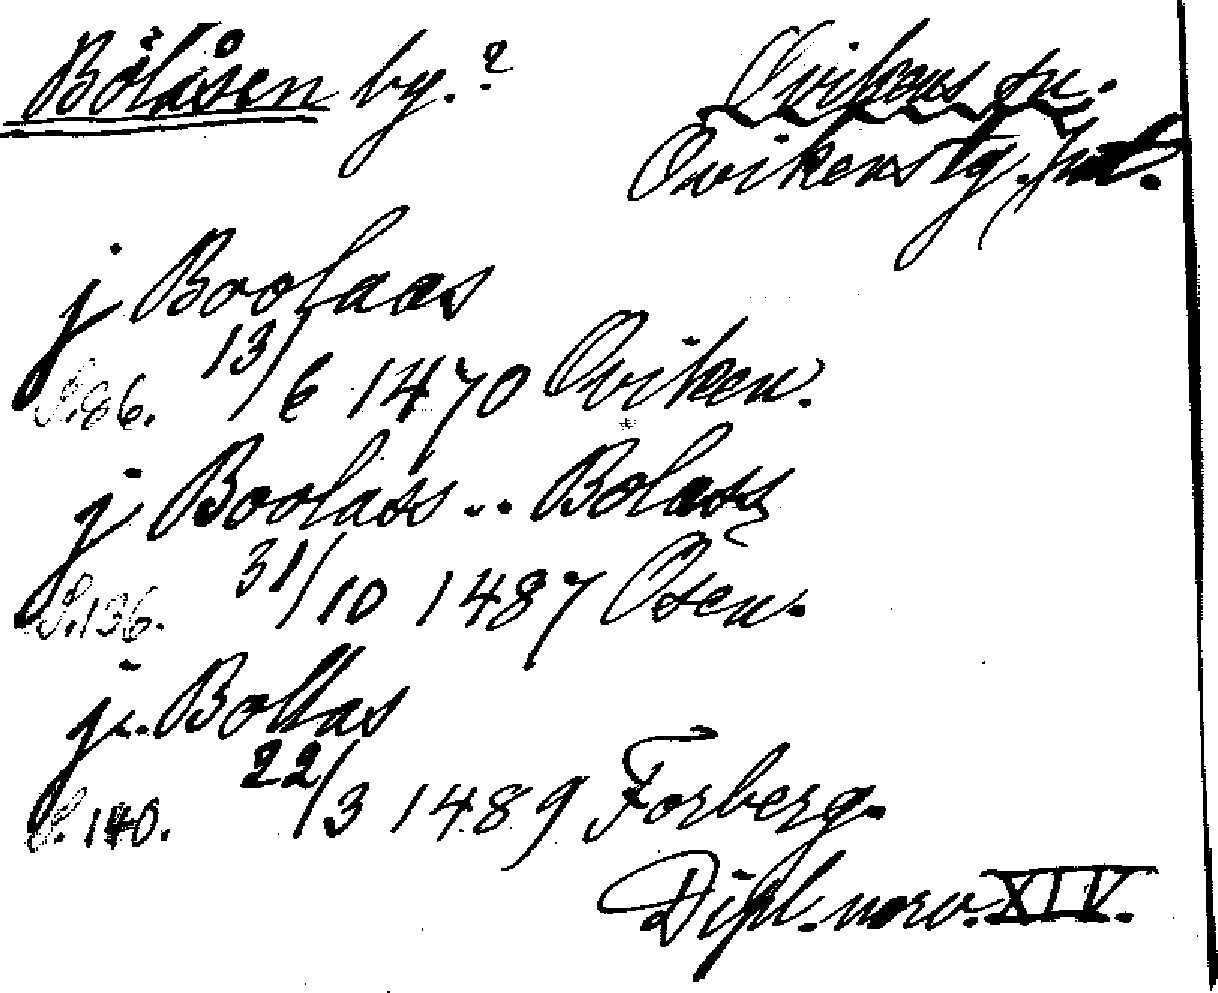 Bölåsen by.? Ovikens sn.
Ovikens tg. Jmtl.
j Boolaas
S. 86. 13/6 1470 Oviken.
j Boolass .. Bolass
S. 136. 31/10 1487 Osen.
j .. Bollas
S. 140. 22/3 1489 Forberg.
Dipl. norv. XIV.